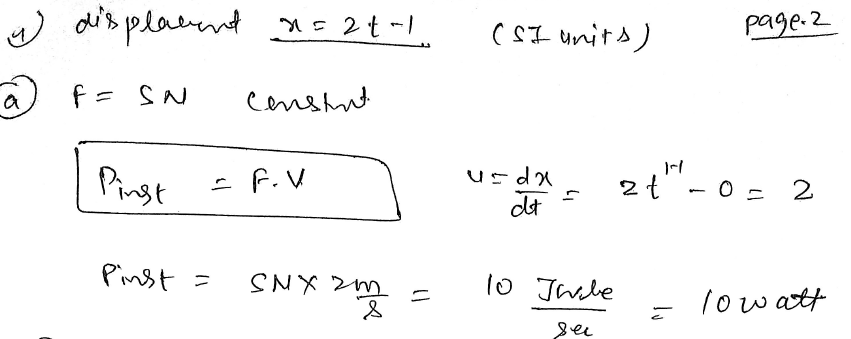 4) displacement x = 2t-1 (SI units) page.2
(a) F = 5N constnt
Pinst = F.V u = dx/dt = 2t^1-1 - 0 = 2
Pinst = 5N x 2m/s = 10 Joule/sec = 10 watt